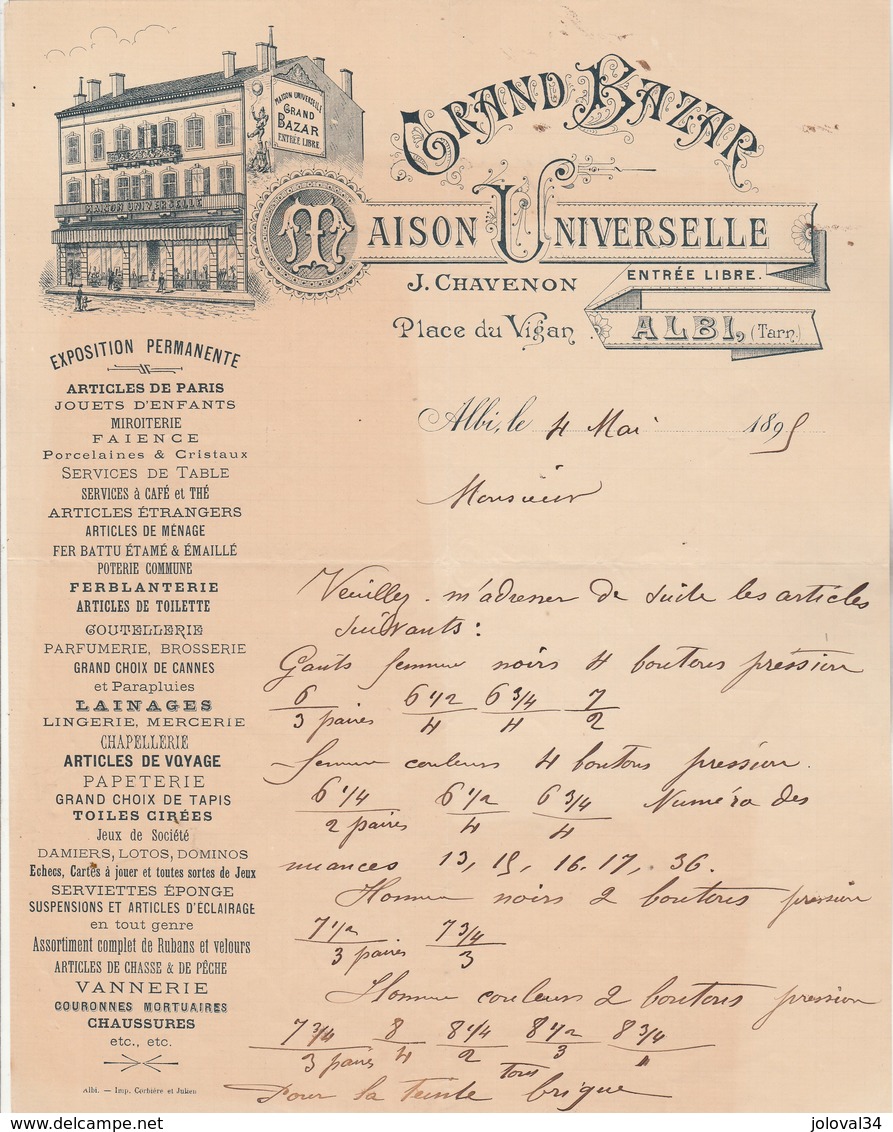 MAISON UNIVERSELLE
GRAND
BAZAR
ENTRÉE LIBRE
MAISON UNIVERSELLE
GRAND BAZAR
MAISON UNIVERSELLE
J. CHAVENON
ENTRÉE LIBRE.
Place du Vigan
ALBI, (Tarn)
EXPOSITION PERMANENTE
ARTICLES DE PARIS
JOUETS D'ENFANTS
MIROITERIE
FAIENCE
Porcelaines & Cristaux
SERVICES DE TABLE
SERVICES à CAFÉ et THÉ
ARTICLES ÉTRANGERS
ARTICLES DE MÉNAGE
FER BATTU ÉTAMÉ & ÉMAILLÉ
POTERIE COMMUNE
FERBLANTERIE
ARTICLES DE TOILETTE
COUTELLERIE
PARFUMERIE, BROSSERIE
GRAND CHOIX DE CANNES
et Parapluies
LAINAGES
LINGERIE, MERCERIE
CHAPELLERIE
ARTICLES DE VOYAGE
PAPETERIE
GRAND CHOIX DE TAPIS
TOILES CIRÉES
Jeux de Société
DAMIERS, LOTOS, DOMINOS
Echecs, Cartes à jouer et toutes sortes de Jeux
SERVIETTES ÉPONGE
SUSPENSIONS ET ARTICLES D'ÉCLAIRAGE
en tout genre
Assortiment complet de Rubans et velours
ARTICLES DE CHASSE & DE PÊCHE
VANNERIE
COURONNES MORTUAIRES
CHAUSSURES
etc., etc.
Albi. — Imp. Corbière et Julien
Albi, le 4 Mai 1895
Monsieur
Veuillez m'adresser de suite les articles
suivants :
Gants femme noirs 4 boutons pression
6 6 1/2 6 3/4 7
3 paires 4 4 2
femme couleurs 4 boutons pression.
6 1/4 6 1/2 6 3/4 Numéro des
2 paires 4 4
nuances 13, 15, 16. 17, 36.
Homme noirs 2 boutons pression
7 1/2 7 3/4
3 paires 3
Homme couleurs 2 boutons pression
7 3/4 8 8 1/4 8 1/2 8 3/4
3 paires 4 2 3 "
tous
Pour la teinte brique
joloval34